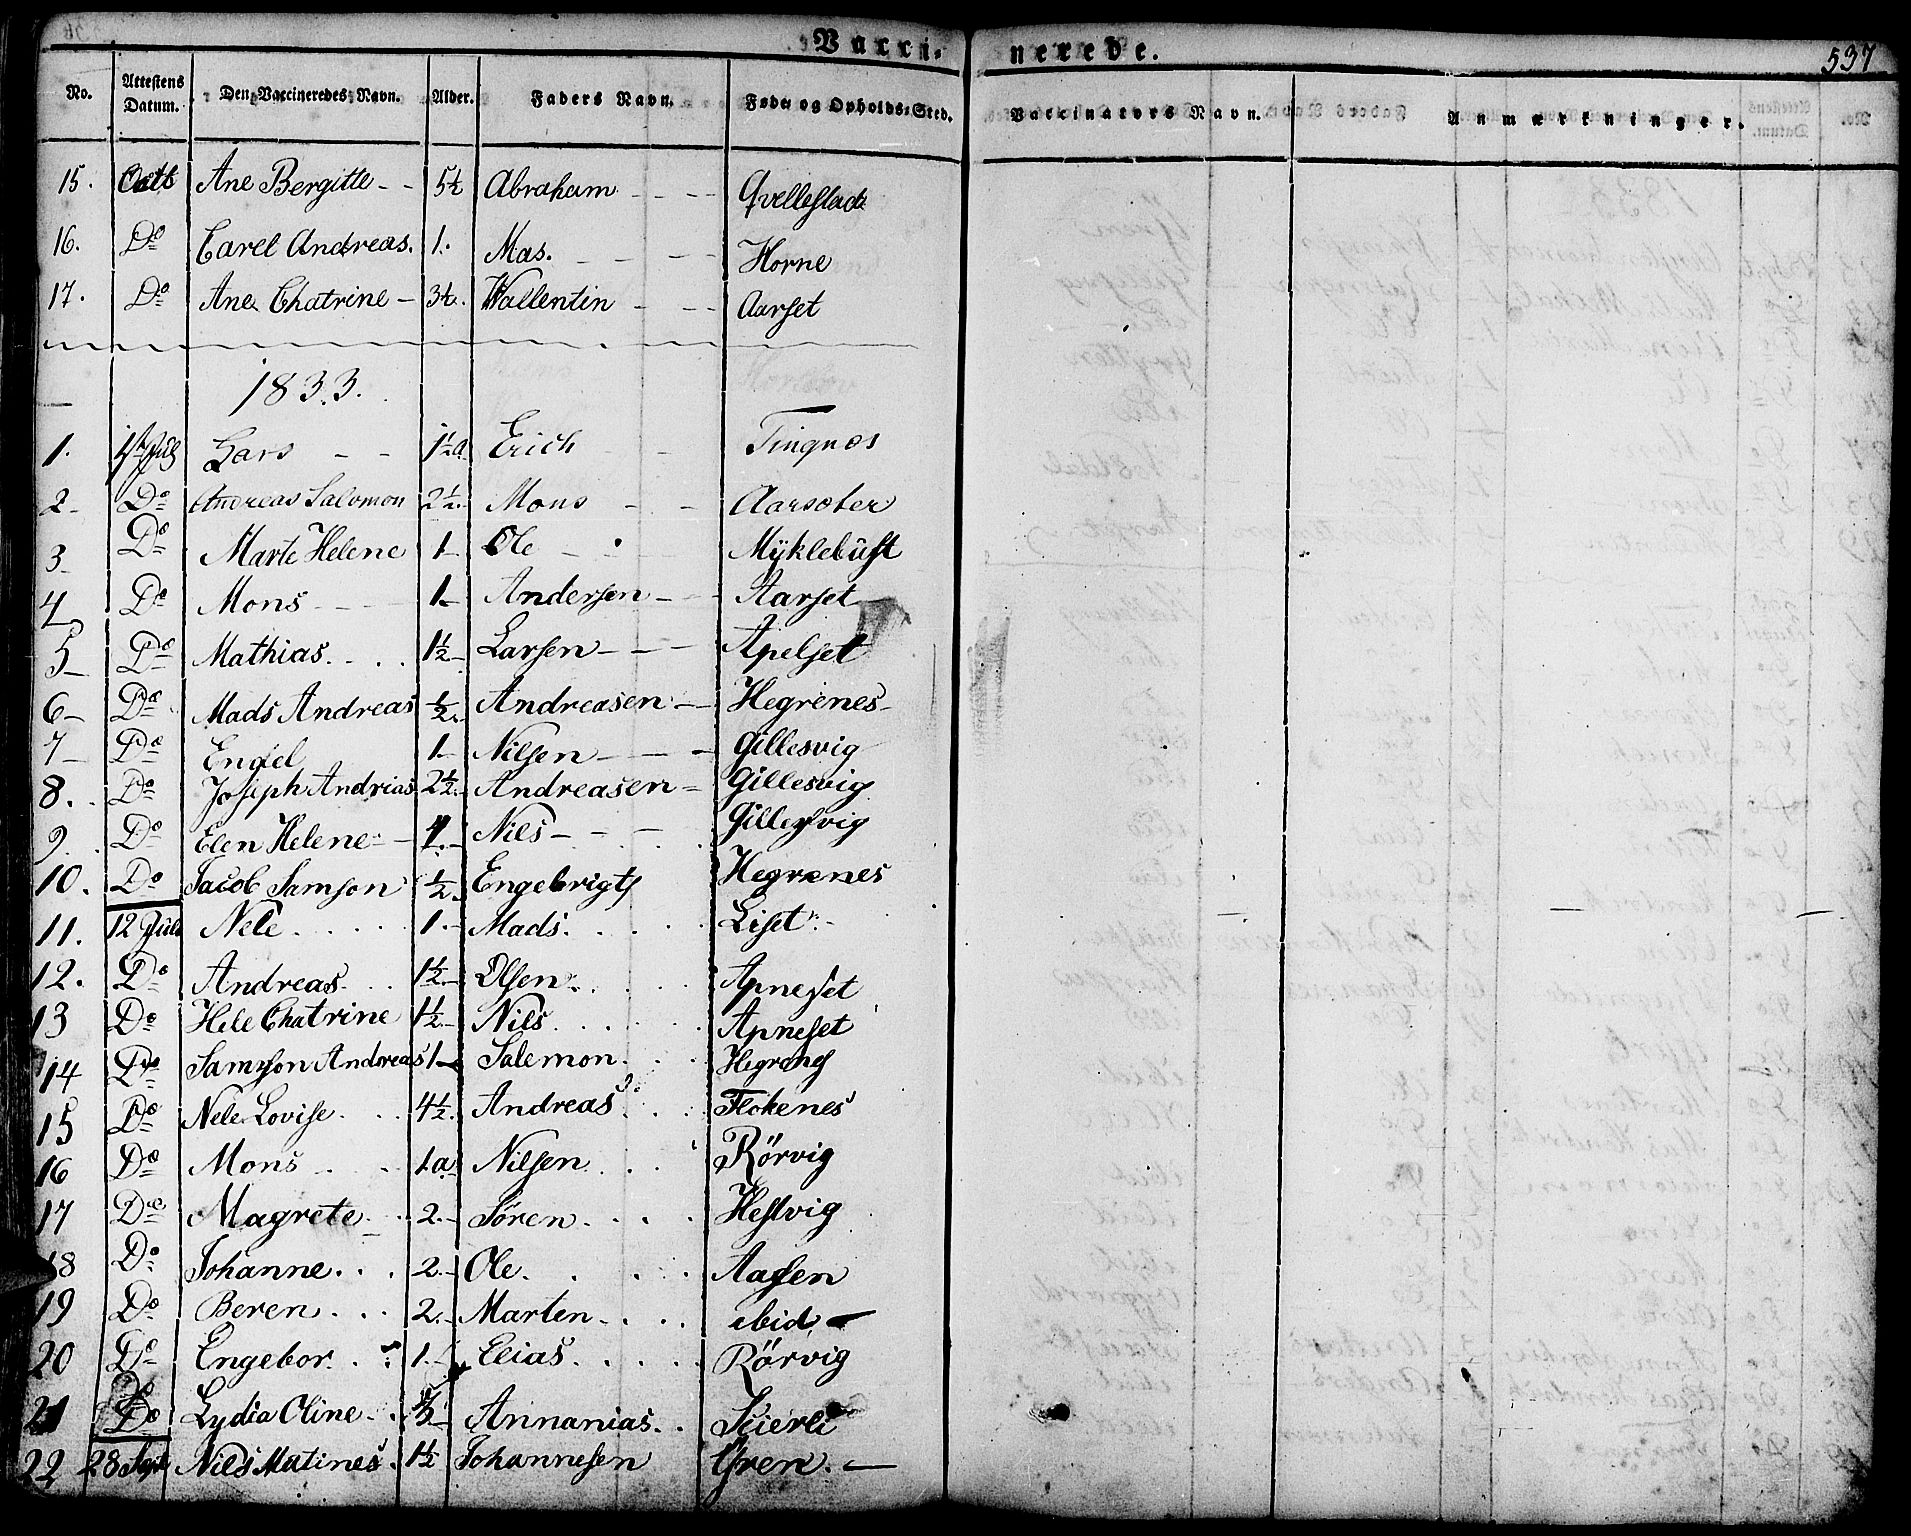 Vacci-nerede. 537
No. Attestens Datum. Den Vaccineredes Navn. Alder. Faders Navn. Føde og Opholds-Sted. Vaccinators Navn. Anmærkninger.
15. Ane Bergitte - - 5½ Abraham - - - Qvellestad
16. Do Carel Andreas. 1. Mas. - - - Horne
17. Do Ane Chatrine - 3½. Wallentin - - - Aarset
1833.
1. Lars - - 1½a Erich - - Tingnes
2- Do Andreas Salomon 2½. Mons - - Aarsæter
3- Do Marte Helene 1- Ole - - Mÿklebüst
4 Do Mons - - - 1- Andersen - - Aarset
5- Do Mathias. . . . 1½- Larsen - - - Apelset
6- Do Mads Andreas ½. Andreasen - - Hegrenes-
7- Do Engel 1- Nilsen - - - Gillesvig
8. Do Joseph Andrias 2½- Andreasen - Gillesvig
9. Do Elen Helene - - Nils - - - Gillesvig
10. Do Jacob Samson ½. Engebrigts Hegrenes
11. 12 Juli Nele . . . . . 1.- Mads. . . . . Liset
12. Do Andreas. . . 1½.- Olsen . . . . Apneset
13 Do Hele Chatrine 1½.- Nils . . . . . Apneset
14 Do Samson Andreas 1- Salemon. . . Hegrenes
15 Do Nele Lovise. . . 4½. Andreas . . . Flokenes
16 Do Mons . . . 1a Nilsen . . . Rörvig
17 Do Magrete . . 2.- Sören. . . . Hestvig
18 Do Johanne. . . 2.- Ole. . . . Aasen
19 Do Beren . . . 2.- Marten - . . . ibid -
20 Do Engebor. . . 1.- Elias. . . . . Rörvig
21 Do Lydia Oline - . Annanias. . Seierli
22 28 Sept Nils Matines. 1½ Johannesen Gren. -